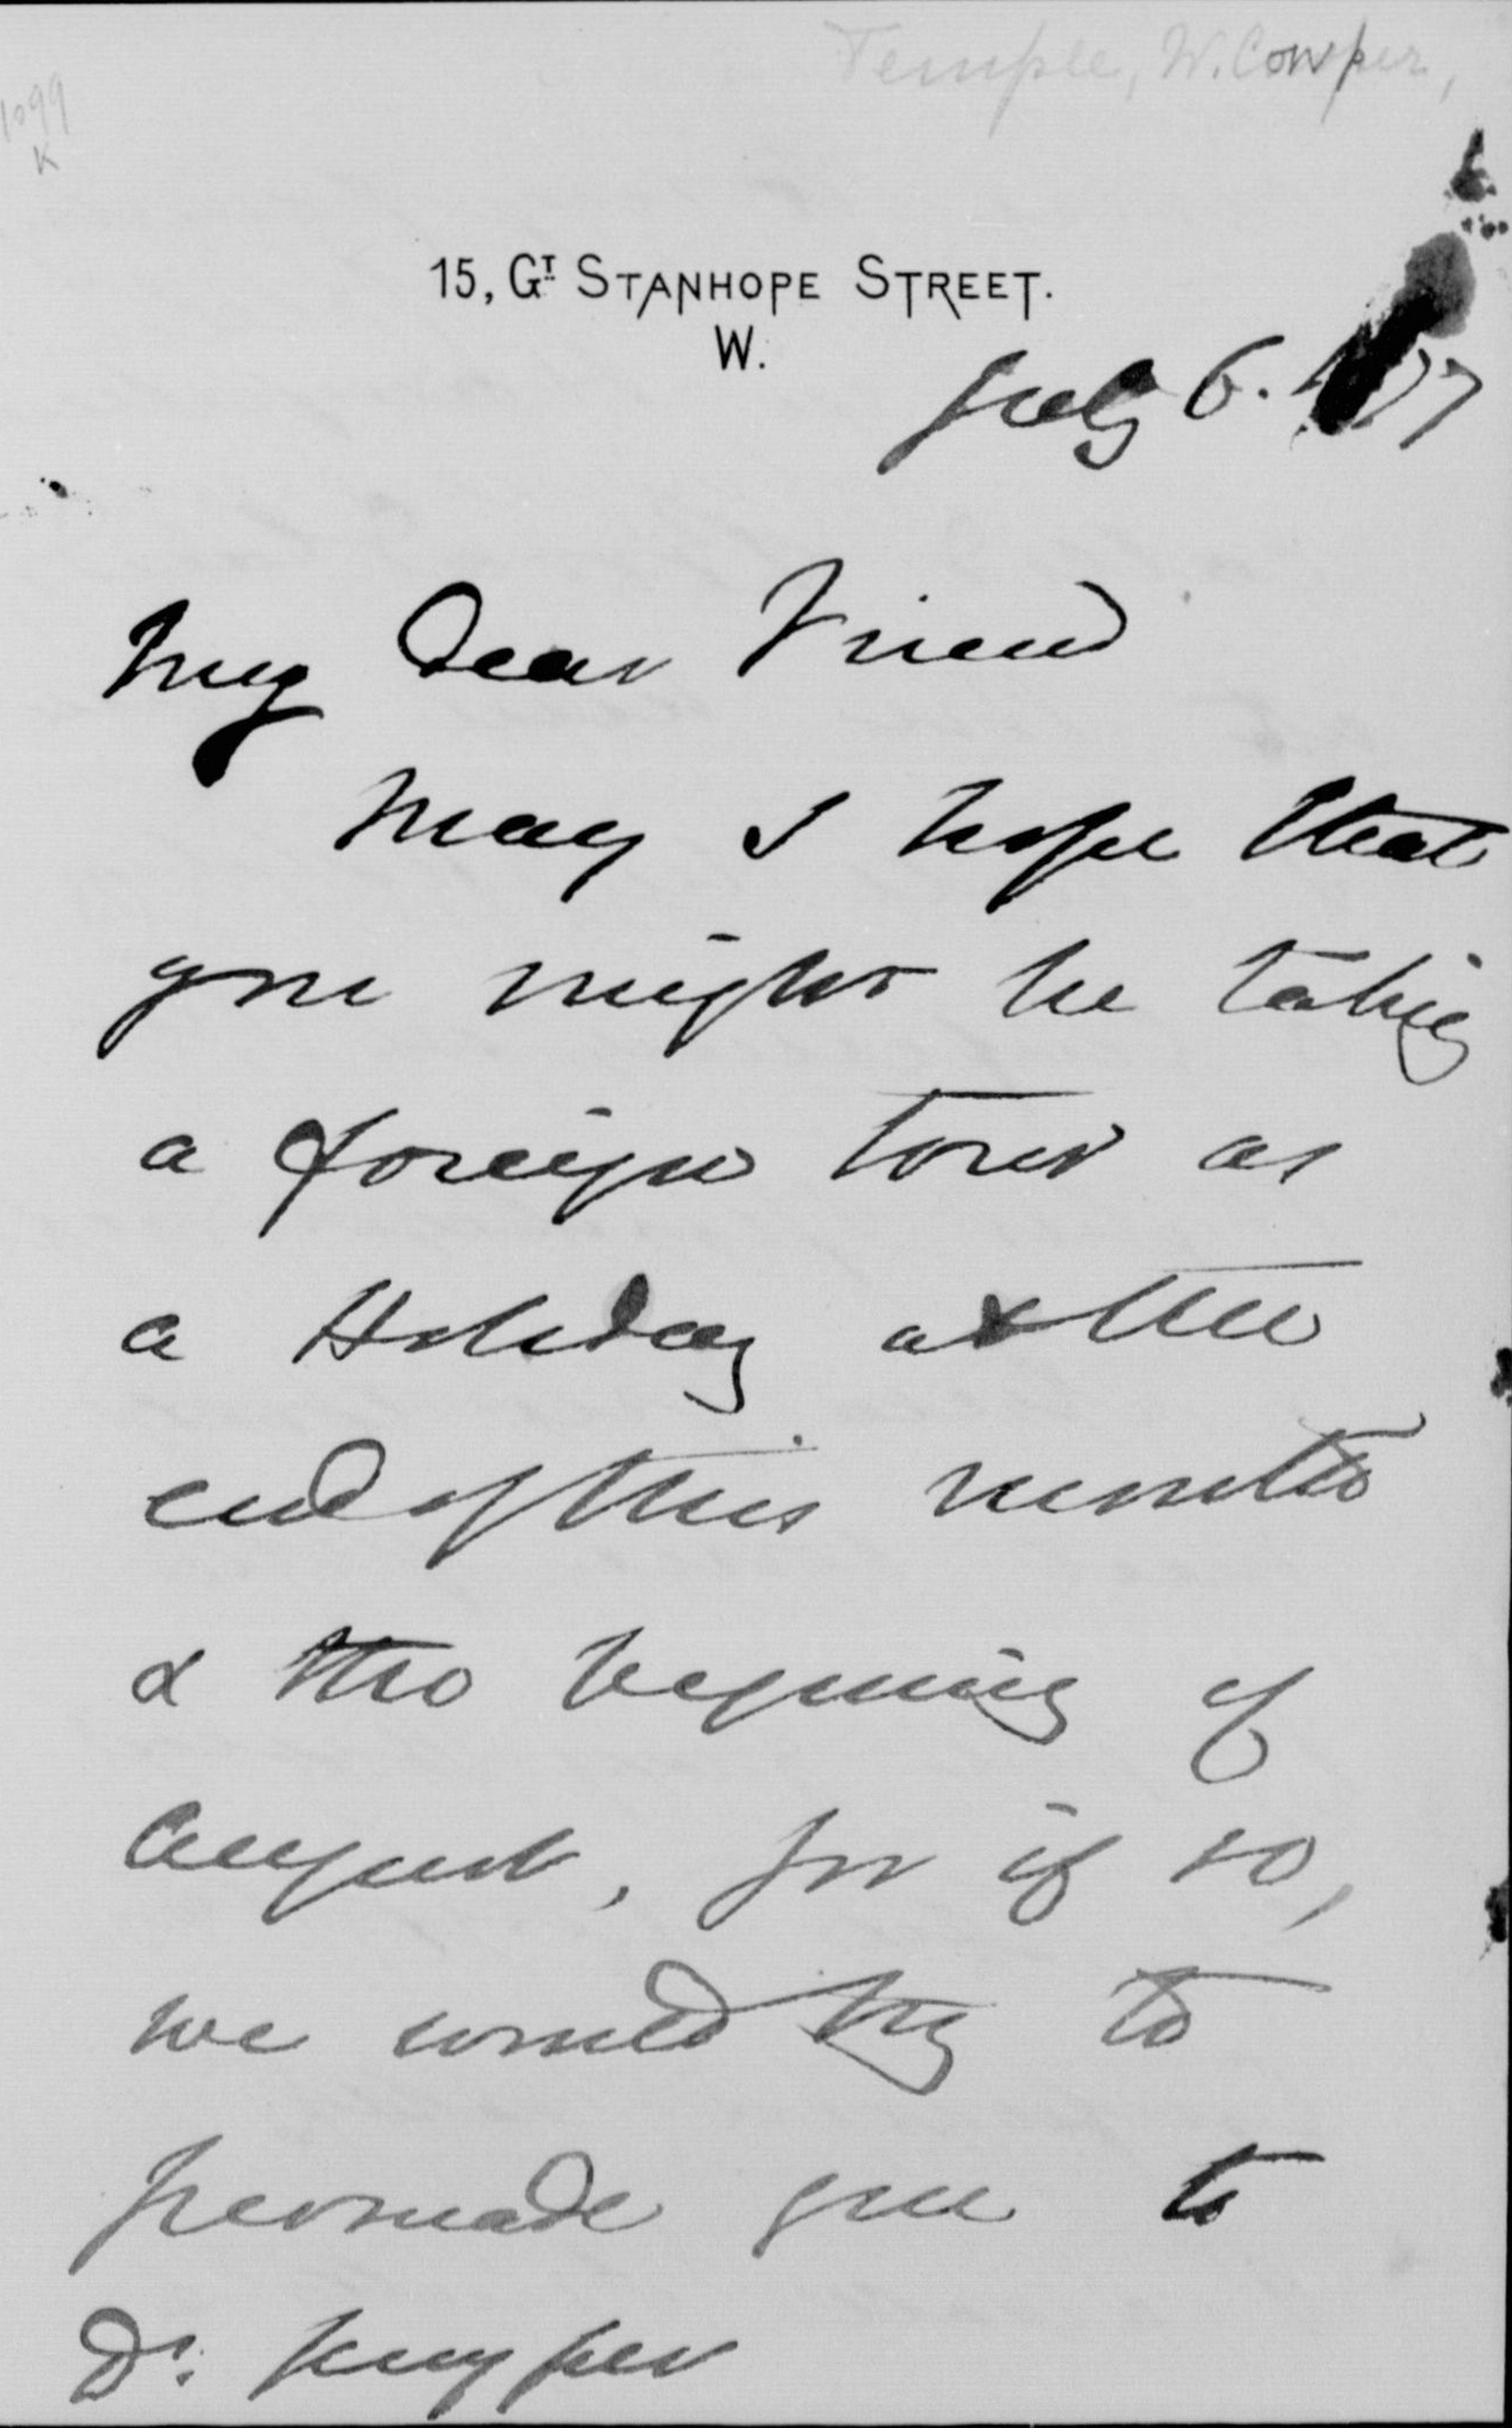 Temple, W. Cowper,
1099
K
15, GT STANHOPE STREET.
W.
July 6. 77
My Dear Friend
May I hope that
you might be taking
a foreign tour as
a Holiday at the
end of this month
& the begining of
August, for if so,
we would try to
persuade you to
Dr. Kuyper